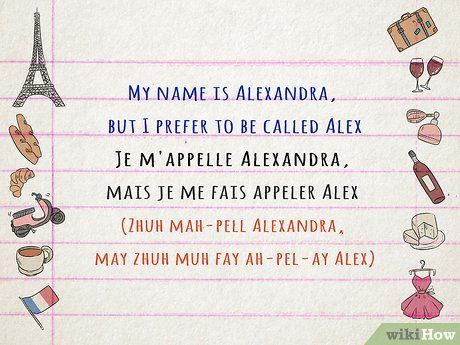 My name is Alexandra,
but I prefer to be called Alex
Je m'appelle Alexandra,
mais je me fais appeler Alex
(Zhuh mah-pell Alexandra,
may zhuh muh fay ah-pel-ay Alex)
wikiHow